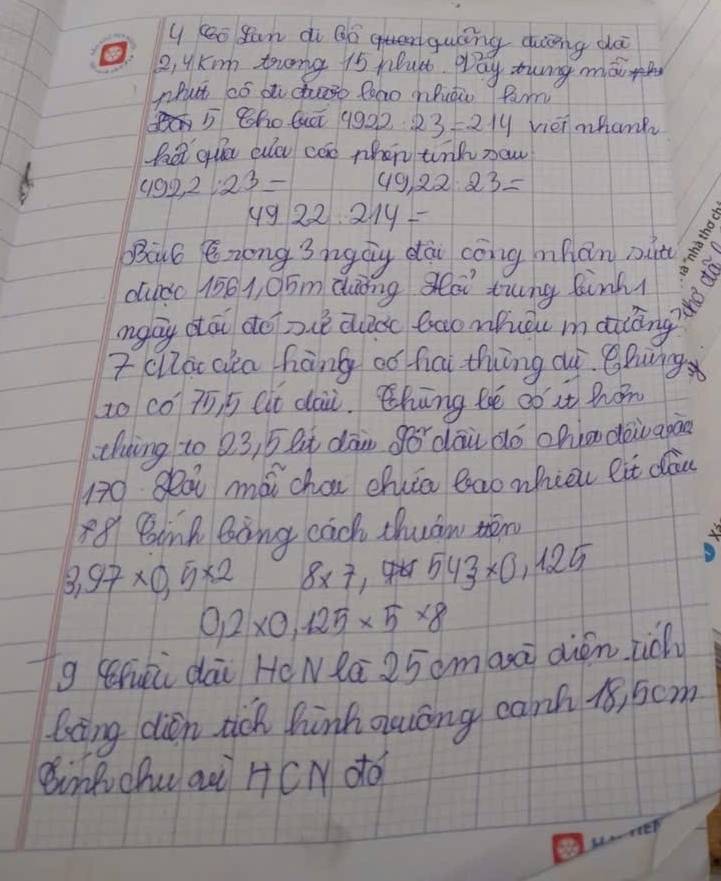 4 Cô Lan đi bộ quãng đường dài
2,4km trong 15 phút. Vậy trung mỗi
phút cô đi được bao nhiêu km
5 Cho biết 4922 : 23 = 214 viết nhanh
kết quả của các phép tính sau
492,2 : 23 = 49,22 : 23 =
49 22 : 214 =
Bài 6 Trong 3 ngày đội công nhân sửa
được 1561,05m đường Hỏi trung bình 1
ngày đội đó sửa được bao nhiêu m đường?
7 cửa hàng có hai thùng dầu. Thùng
to có 75,5 lít dầu. Thùng bé có ít hơn
thùng to 23,5 lít dầu số dầu đó chia đều vào
170 Hỏi mỗi chai chứa bao nhiêu lít dầu
*8 Tính bằng cách thuận tiện
3,97 × 0,5 × 2 8 × 7, 543 × 0,125
0,2 × 0,125 × 5 × 8
9 Chiều dài HCN là 25cm và diện tích
bằng diện tích hình vuông cạnh 18,5cm
Tính chu vi HCN đó